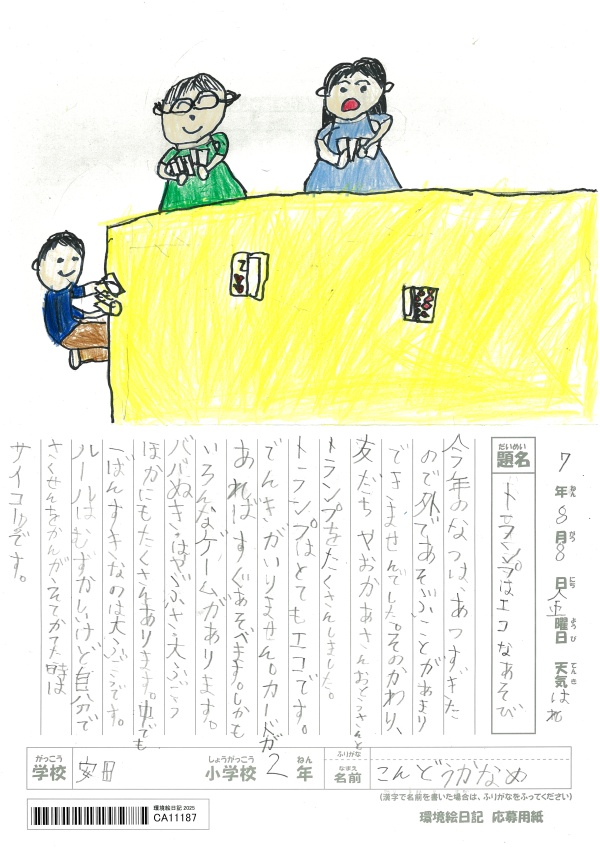 7年8月8日金曜日 天気はれ
題名 トランプはエコなあそび
今年のなつは、あつすぎた
ので外であそぶことがあまり
できませんでした。そのかわり、
友だちやおかあさんおとうさんと
トランプをたくさんしました。
トランプはとてもエコです。
でんきがいりません。カードが
あればすぐあそべます。しかも
いろんなゲームがあります。
ババぬき・はやぶさ・大ぶごう
ほかにもたくさんあります。中でも
一ばんすきなのは大ぶごうです。
ルールはむずかしいけど自分で
さくせんをかんがえてかてた時は
サイコーです。
学校 安田 小学校 2年 名前 こんどうかなめ
(漢字で名前を書いた場合は、ふりがなをふってください)
環境絵日記 2025
CA11187
環境絵日記 応募用紙